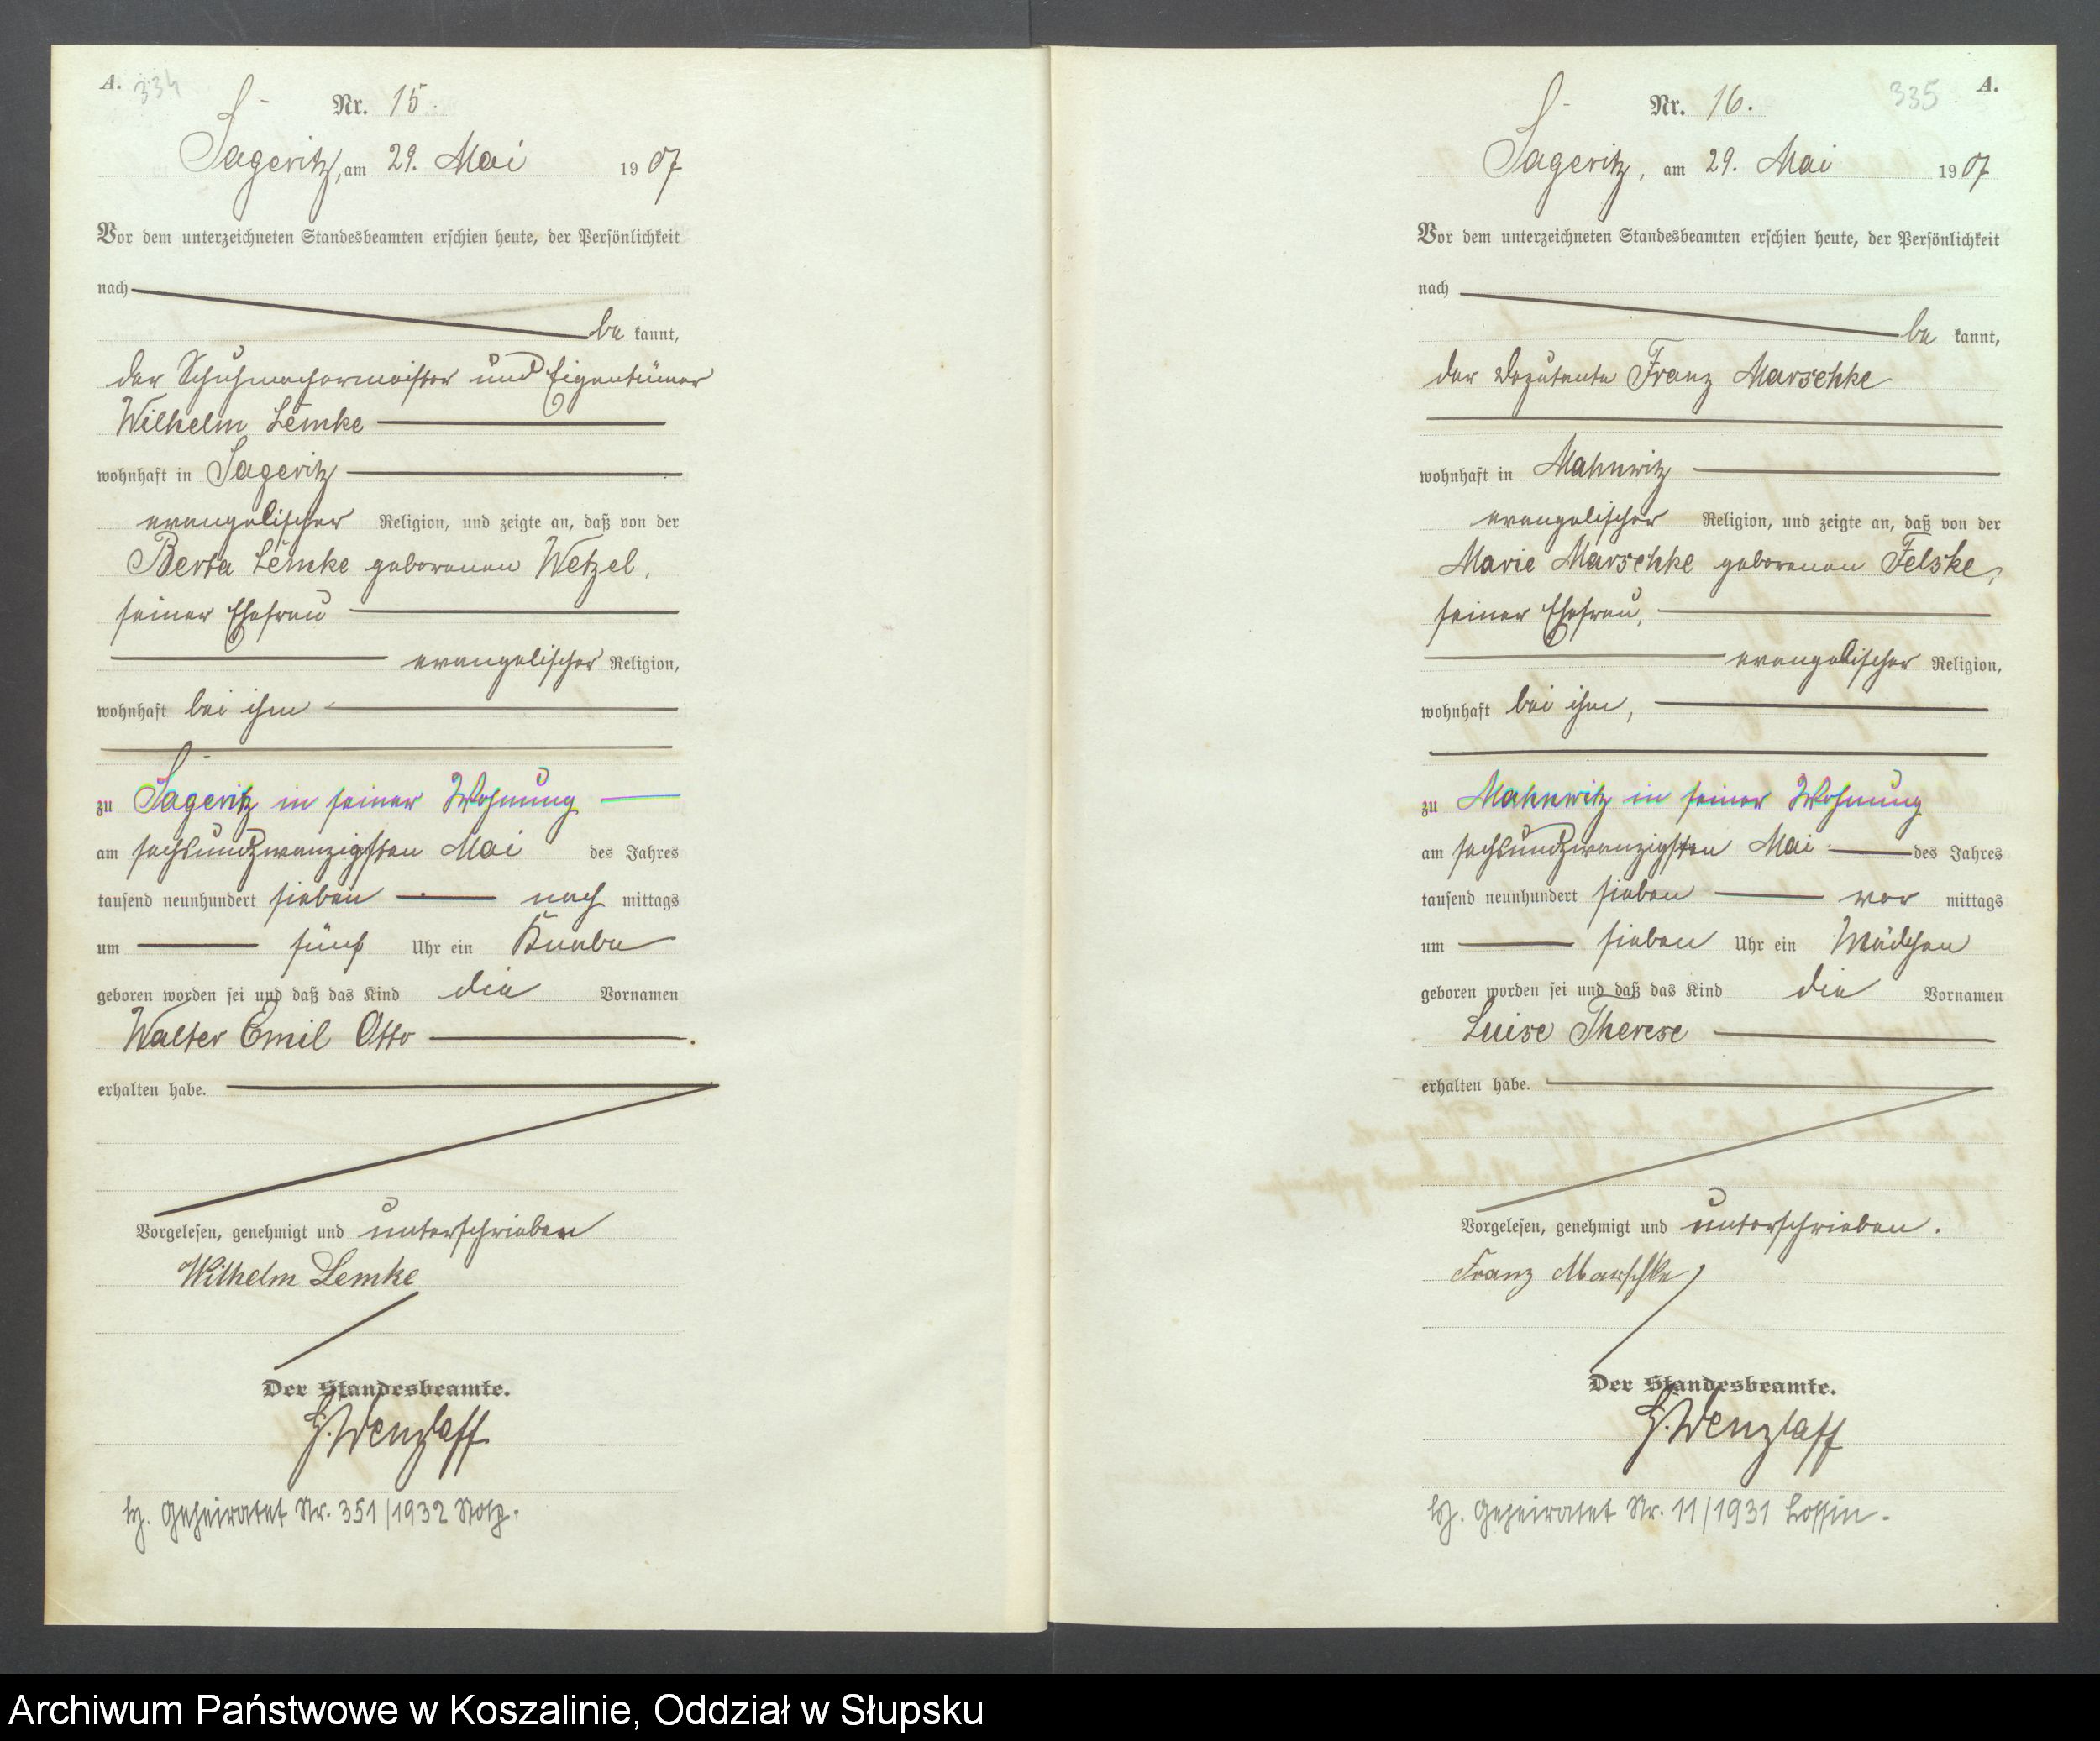 A. 334
Nr. 15.
Sageritz, am 29. Mai 1907
Vor dem unterzeichneten Standesbeamten erschien heute, der Persönlichkeit
nach
be kannt,
der Schuhmachermeister und Eigentümer
Wilhelm Lemke
wohnhaft in Sageritz
evangelischer Religion, und zeigte an, daß von der
Berta Lemke geborenen Wetzel,
seiner Ehefrau
evangelischer Religion,
wohnhaft bei ihm
zu Sageritz in seiner Wohnung
am sechsundzwanzigsten Mai des Jahres
tausend neunhundert sieben nach mittags
um fünf Uhr ein Knabe
geboren worden sei und daß das Kind die Vornamen
Walter Emil Otto
erhalten habe.
Vorgelesen, genehmigt und unterschrieben
Wilhelm Lemke
Der Standesbeamte.
Wenzlaff
Geheiratet Nr. 351/1932 Stolp.
335 A.
Nr. 16.
Sageritz, am 29. Mai 1907
Vor dem unterzeichneten Standesbeamten erschien heute, der Persönlichkeit
nach
be kannt,
der Deputante Franz Marschke
wohnhaft in Mahnwitz
evangelischer Religion, und zeigte an, daß von der
Marie Marschke geborenen Felske,
seiner Ehefrau,
evangelischer Religion,
wohnhaft bei ihm,
zu Mahnwitz in seiner Wohnung
am sechsundzwanzigsten Mai des Jahres
tausend neunhundert sieben vor mittags
um sieben Uhr ein Mädchen
geboren worden sei und daß das Kind die Vornamen
Luise Therese
erhalten habe.
Vorgelesen, genehmigt und unterschrieben.
Franz Marschke
Der Standesbeamte.
Wenzlaff
Geheiratet Nr. 11/1931 Lossin.
Archiwum Państwowe w Koszalinie, Oddział w Słupsku